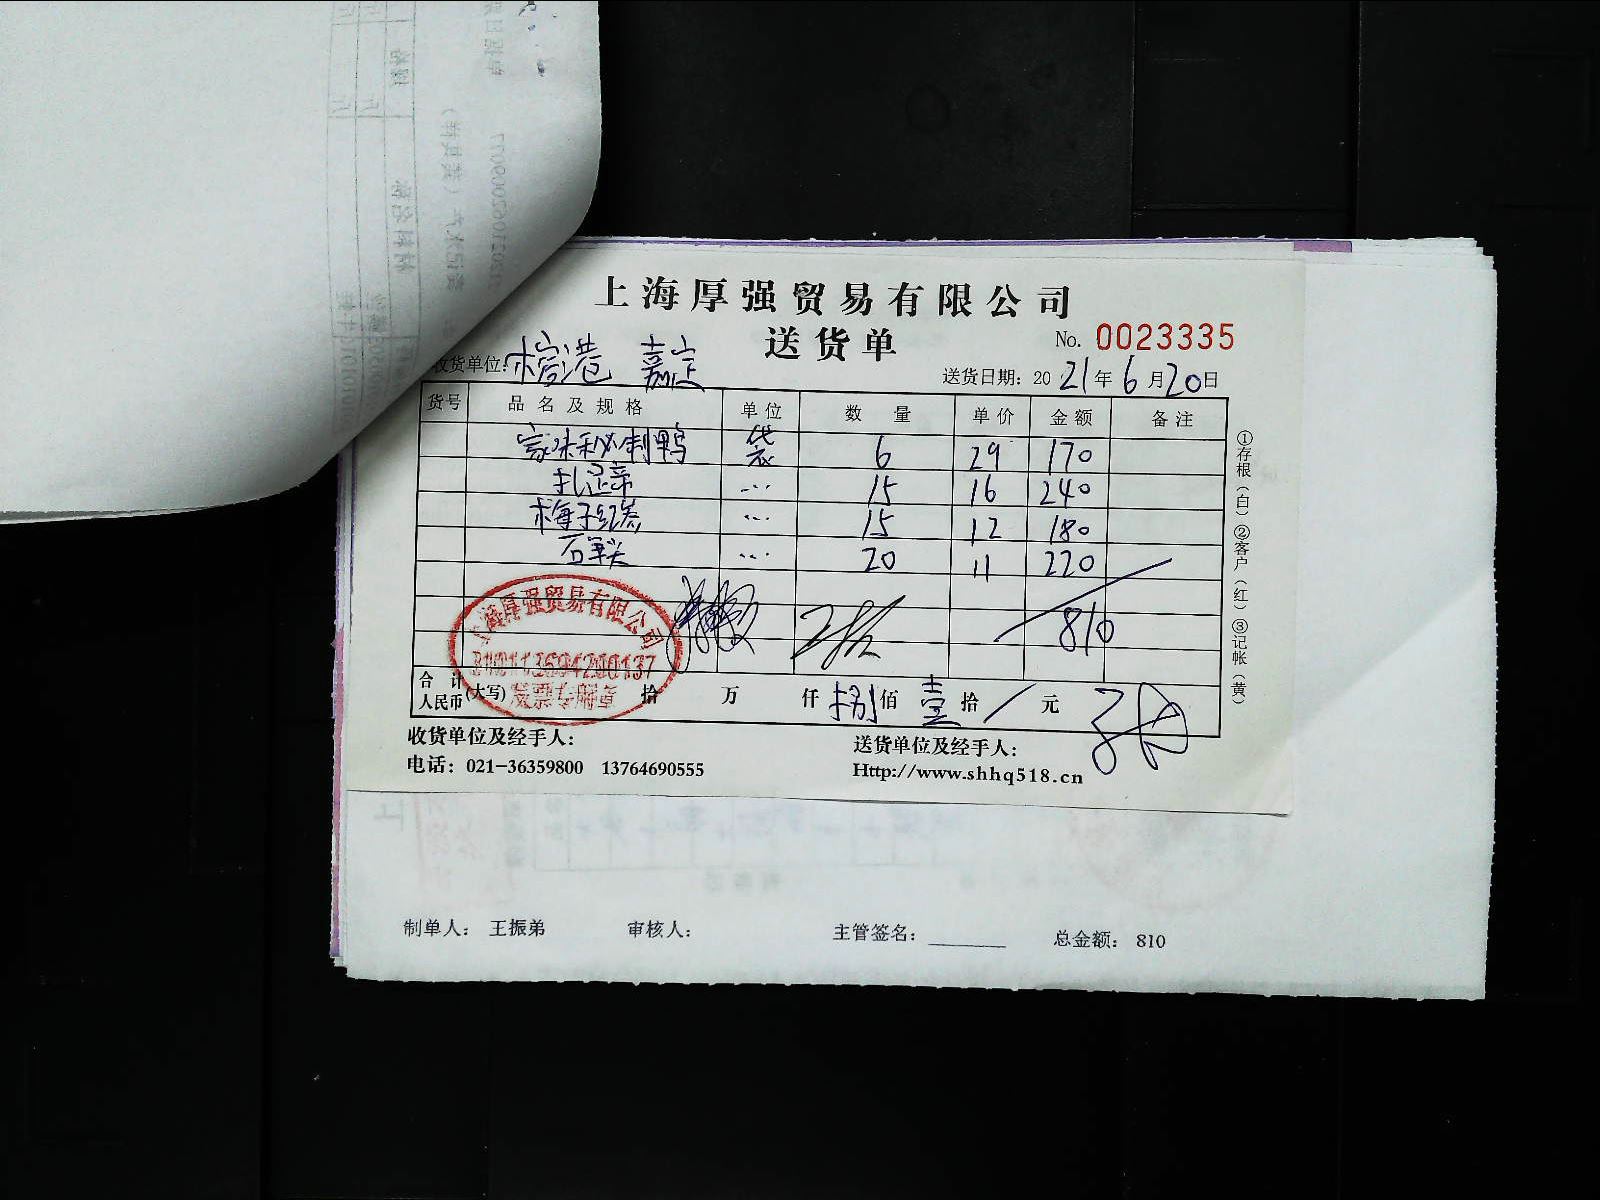 上海厚强贸易有限公司
送货单
No. 0023335
收货单位: 榕港 嘉定
送货日期: 2021年6月20日
货号 品名及规格 单位 数量 单价 金额 备注
家味秘制鸭 袋 6 29 170
扎蹄 ... 15 16 240
梅子红 ... 15 12 180
... 20 11 220
810
上海厚强贸易有限公司
发票专用章
合计人民币(大写) 拾 万 仟 捌佰 壹拾 / 元
收货单位及经手人:
送货单位及经手人:
电话: 021-36359800 13764690555
Http://www.shhq518.cn
①存根(白)②客户(红)③记帐(黄)
制单人: 王振弟 审核人: 主管签名: ______ 总金额: 810